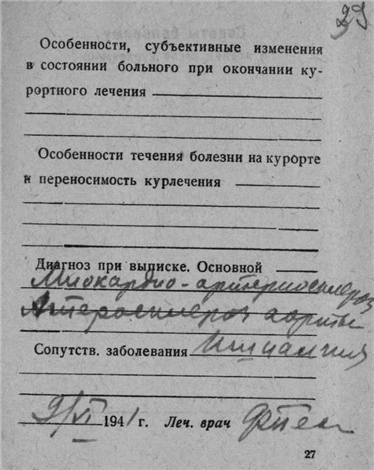 39
Особенности, субъективные изменения
в состоянии больного при окончании ку-
рортного лечения
Особенности течения болезни на курорте
и переносимость курлечения
Диагноз при выписке. Основной
Миокардио-артериосклероз
Атеросклероз аорты
Сопутств. заболевания Ишиалгия
9/VI 1941г. Леч. врач
27